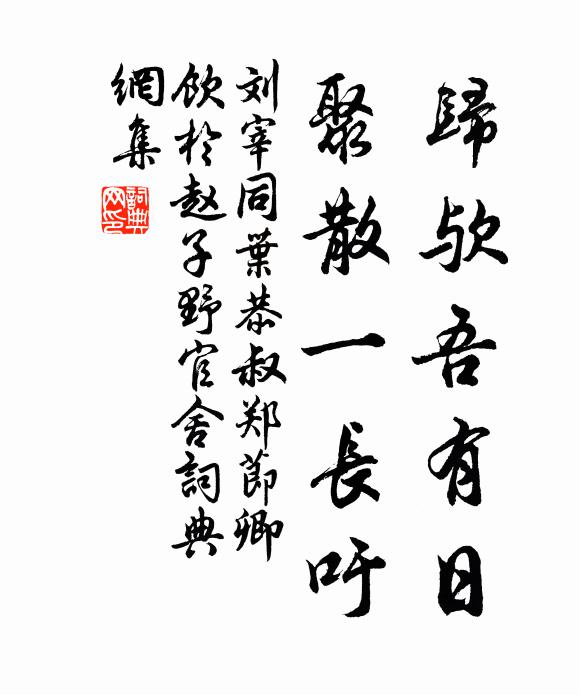 歸欤吾有日
聚散一長吁
刘宰同葉恭叔郑節卿
飲於赵子野官舍詞典
網集
詞典网印